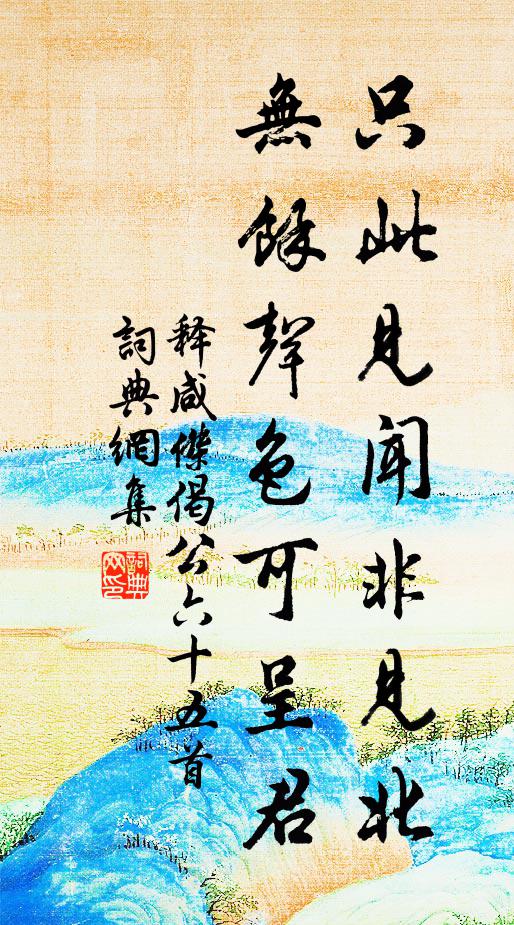 只此見聞非見北
無餘聲色可呈君
释咸傑偈公六十五首
詞典網集
詞典
网印